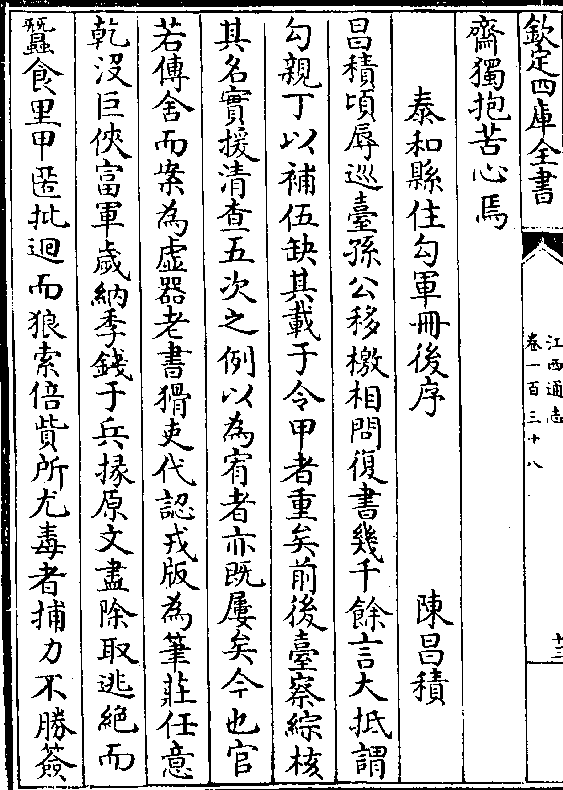 欽定四庫全書
江西通志
卷一百三十八
十三
齋獨抱苦心焉
泰和縣住勾軍冊後序
陳昌積
昌積頃辱巡臺孫公移檄相問復書幾千餘言大抵謂
勾親丁以補伍缺其載于令甲者重矣前後臺察綜核
其名實援清查五次之例以為宥者亦既屢矣今也官
若傳舍而案為虛器老書猾吏代認戎版為筆莊任意
乾沒巨俠富軍歲納季錢于兵掾原文盡除取逃絕而
蠶食里甲匿批迴而狼索倍貲所尤毒者捕力不勝簽